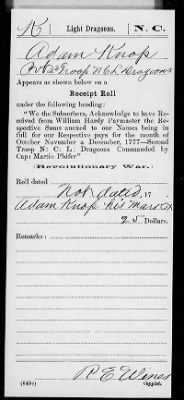 K | Light Dragoons. | N. C.
Adam Knop
Pvt 2d Troop N C L Dragoons
Appears as shown below on a
Receipt Roll
under the following heading:
"We the Suborbers, Acknowledge to have Re-
ceived from William Hardy Paymaster the Re-
spective Sums anexed to our Names being in
full for our Respective pays for the month of
October November & Decembur, 1777—Second
Troop N: C: L: Dragoons Commanded by
Capt Martin Phifer"
(Revolutionary War.)
Roll dated
Not dated, 17
Adam Knop his mark X
25 Dollars.
Remarks:
R E Wines
Copyist.